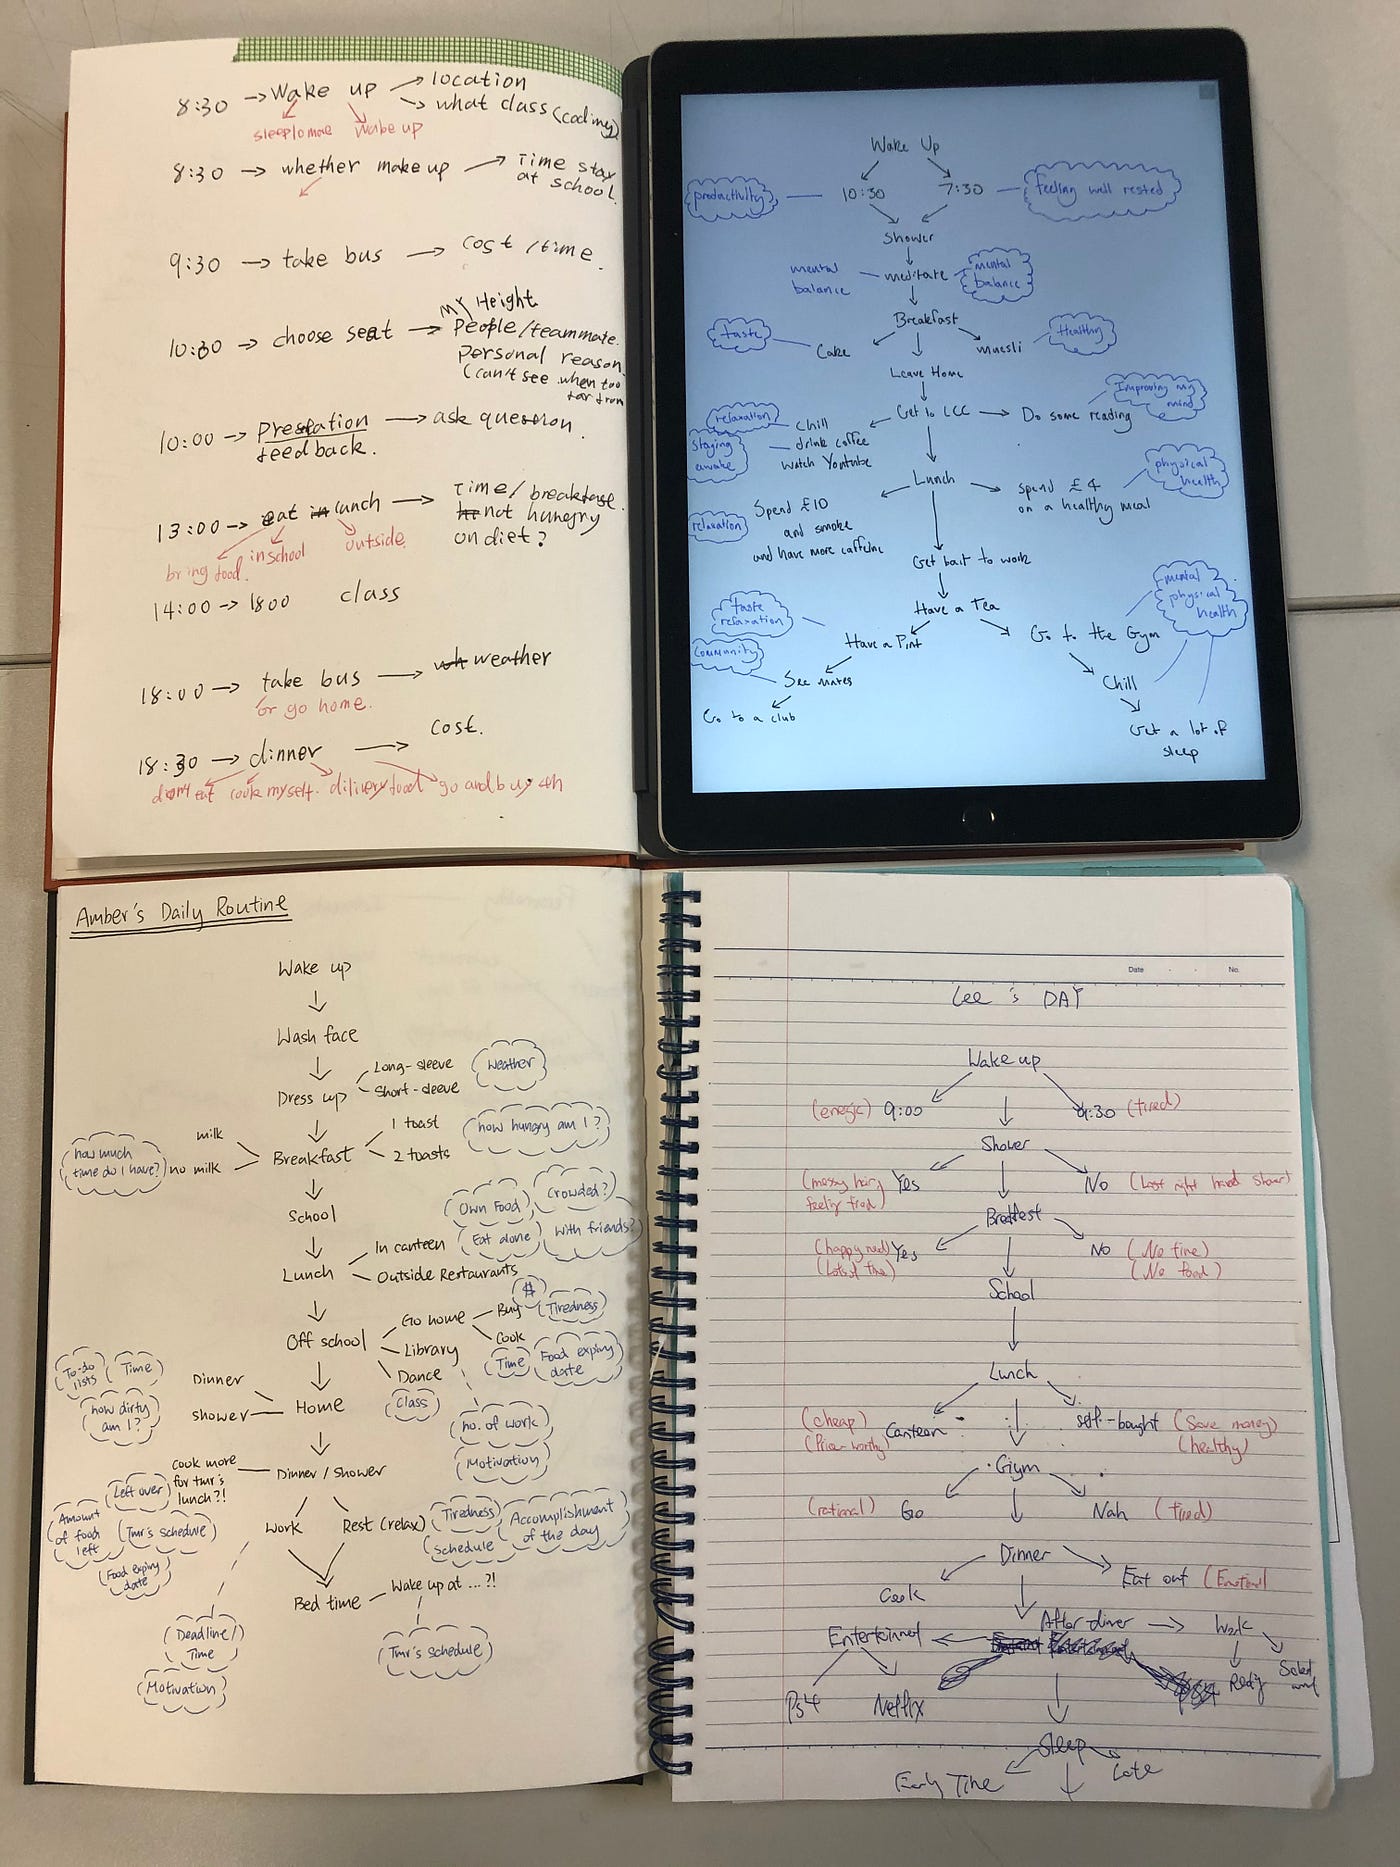 8:30 → Wake up → location
→ what class (coding)
wake up
8:30 → whether make up → Time stay
at school.
9:30 → take bus → cost / time.
My Height
10:30 → choose seat → People/teammate.
Personal reason.
(can't see when too
far from
10:00 → → ask question.
feedback.
13:00 → eat lunch → Time/
not hungry
on diet?
bring food. in school outside.
14:00 → 1800 class
18:00 → take bus → weather
or go home.
cost.
18:30 → dinner →
don't eat cook myself. dilivery food go and buy
Wake Up
productivity 10:30 7:30 feeling well rested
Shower
mental
balance
meditate
mental
balance
Breakfast
taste Cake muesli Healthy
Leave Home
Get to LCC → Do some reading
Improving my
mind
relaxation
staying
awake
chill
drink coffee
watch Youtube
Lunch
Spend £10
and smoke
and have more caffeine
relaxation
spend £4
on a healthy meal
physical
health
Get back to work
Have a Tea
taste
relaxation
Have a Pint
Go to the Gym
mental
physical
health
community
See mates
Chill
Go to a club
Get a lot of
sleep
Amber's Daily Routine
Wake up
Wash face
Dress up
Long-sleeve
Short-sleeve
Weather
milk
no milk
how much
time do I have?
Breakfast
1 toast
2 toasts
how hungry am I?
School
Lunch
In canteen
Outside Restaurants
Own Food
Eat alone
Crowded?
With friends?
Off school
Go home
Library
Dance
Buy
Cook
$
Tiredness
Time
Food expiry
date
class
no. of work
Motivation
To-do
lists
Time
how dirty
am I?
Dinner
shower
Home
Dinner / Shower
cook more
for tmr's
lunch?!
Left over
Amount
of food
left
Tmr's schedule
Food expiry
date
Work
Rest (relax)
Tiredness
Schedule
Accomplishment
of the day
Bed time
Wake up at ...?!
Deadline/
Time
Motivation
Tmr's schedule
Date No.
Lee's DAY
Wake up
9:00 9:30 (tired)
Shower
(messy hair, Yes No (Last night haved shower)
feeling tired)
Breakfest
Yes No (No time)
(Lots of time) (No food)
School
Lunch
(cheap) Canteen self-bought (Save money)
(healthy)
Gym
(rational) Go Nah (tired)
Dinner
Cook Eat out (Emotional
After diner → Work
Entertainmet
Ps4 Netflix
Sleep
Early Time Late